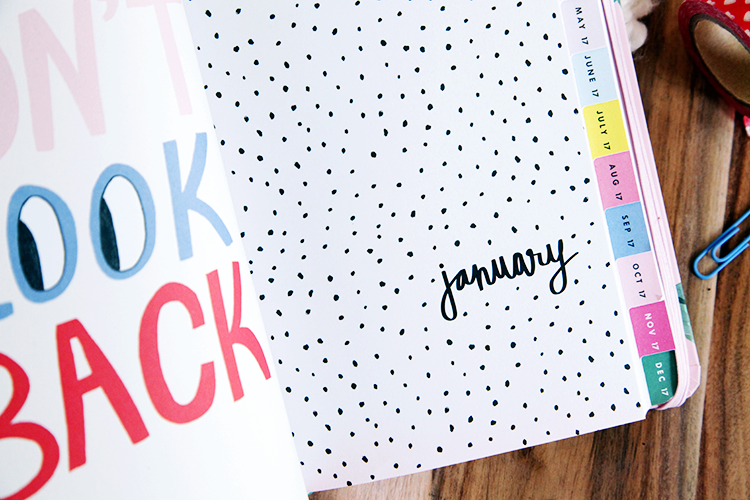 ON'T
LOOK
BACK
january
MAY 17
JUNE 17
JULY 17
AUG 17
SEP 17
OCT 17
NOV 17
DEC 17